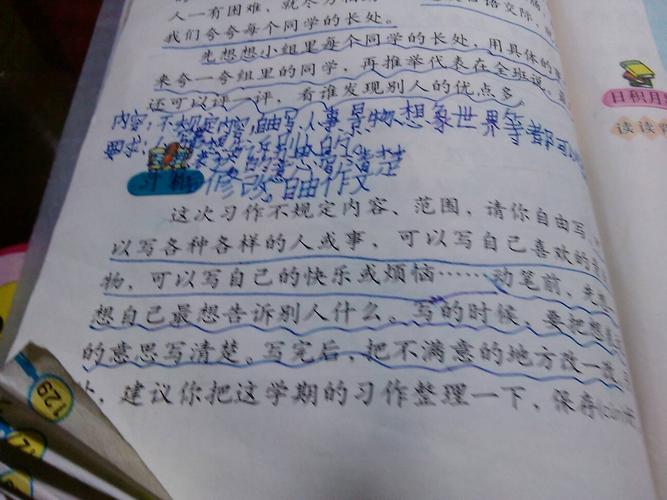 人一有困难，就尽力
我们夸夸每个同学的长处。
先想想小组里每个同学的长处，用具体的
来夸一夸组里的同学，再推举代表在全班说。
还可以评一评，看谁发现别人的优点多。
内容：不规定内容，自由写人事景物想象世界等都可以
要求：
写清楚
习作 修改 自由作文
这次习作不规定内容、范围，请你自由写，
以写各种各样的人或事，可以写自己喜欢的
物，可以写自己的快乐或烦恼……动笔前，先
想自己最想告诉别人什么。写的时候，要把想
的意思写清楚。写完后，把不满意的地方改一改，
建议你把这学期的习作整理一下，保存
129
日积月
读读